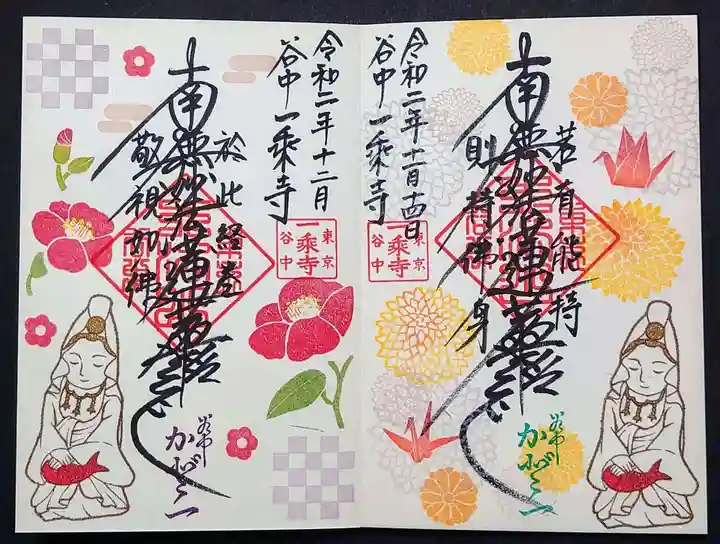 若有能持
南無妙法蓮華経
則持佛身
令和二年十一月十四日
谷中一乗寺
東京
一乗寺
谷中
令和二年十二月
谷中一乗寺
東京
一乗寺
谷中
於此経巻
南無妙法蓮華経
敬視如佛